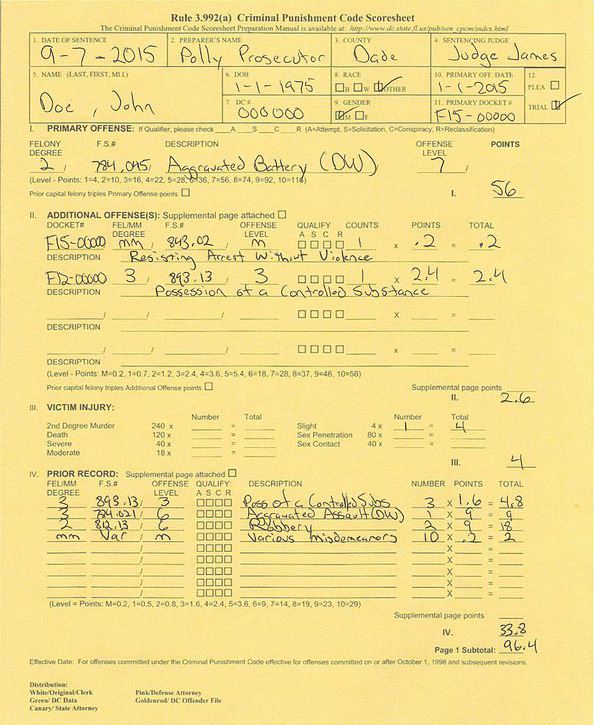 Rule 3.992(a) Criminal Punishment Code Scoresheet
The Criminal Punishment Code Scoresheet Preparation Manual is available at: http://www.dc.state.fl.us/pub/sen_cpcm/index.html
1. DATE OF SENTENCE 2. PREPARER'S NAME 3. COUNTY 4. SENTENCING JUDGE
9-7-2015 Polly Prosecutor Dade Judge James
5. NAME (LAST, FIRST, MI.I.) 6. DOB 8. RACE 10. PRIMARY OFF. DATE 12.
Doe, John 1-1-1975 B W OTHER 1-1-2015 PLEA
7. DC # 9. GENDER 11. PRIMARY DOCKET # TRIAL
000000 M F F15-00000
I. PRIMARY OFFENSE: If Qualifier, please check __A __S __C __R (A=Attempt, S=Solicitation, C=Conspiracy, R=Reclassification)
FELONY F.S.# DESCRIPTION OFFENSE POINTS
DEGREE LEVEL
2 / 784.045/ Aggravated Battery (DW) 7 /
(Level - Points: 1=4, 2=10, 3=16, 4=22, 5=28, 6=36, 7=56, 8=74, 9=92, 10=116)
Prior capital felony triples Primary Offense points I. 56
II. ADDITIONAL OFFENSE(S): Supplemental page attached
DOCKET# FEL/MM F.S.# OFFENSE QUALIFY COUNTS POINTS TOTAL
DEGREE LEVEL A S C R
F15-00000 mm / 843.02 / m 1 x .2 = .2
DESCRIPTION Resisting Arrest Without Violence
F12-00000 3 / 893.13 / 3 1 x 2.4 = 2.4
DESCRIPTION Possession of a Controlled Substance
/ / x =
DESCRIPTION
/ / x =
DESCRIPTION
(Level - Points: M=0.2, 1=0.7, 2=1.2, 3=2.4, 4=3.6, 5=5.4, 6=18, 7=28, 8=37, 9=46, 10=58)
Prior capital felony triples Additional Offense points Supplemental page points
II. 2.6
III. VICTIM INJURY:
Number Total Number Total
2nd Degree Murder 240 x = Slight 4 x 1 = 4
Death 120 x = Sex Penetration 80 x =
Severe 40 x = Sex Contact 40 x =
Moderate 18 x =
III. 4
IV. PRIOR RECORD: Supplemental page attached
FEL/MM F.S.# OFFENSE QUALIFY: DESCRIPTION NUMBER POINTS TOTAL
DEGREE LEVEL A S C R
3 / 893.13 / 3 Poss of a Controlled Subs 3 X 1.6 = 4.8
3 / 784.021 / 6 Aggravated Assault (DW) 1 X 9 = 9
2 / 812.13 / 6 Robbery 2 X 9 = 18
mm / Var / m Various misdemeanors 10 X .2 = 2
/ / X =
/ / X =
/ / X =
/ / X =
(Level = Points: M=0.2, 1=0.5, 2=0.8, 3=1.6, 4=2.4, 5=3.6, 6=9, 7=14, 8=19, 9=23, 10=29)
Supplemental page points
IV. 33.8
Page 1 Subtotal: 96.4
Effective Date: For offenses committed under the Criminal Punishment Code effective for offenses committed on or after October 1, 1998 and subsequent revisions.
Distribution:
White/Original/Clerk Pink/Defense Attorney
Green/ DC Data Goldenrod/ DC Offender File
Canary/ State Attorney